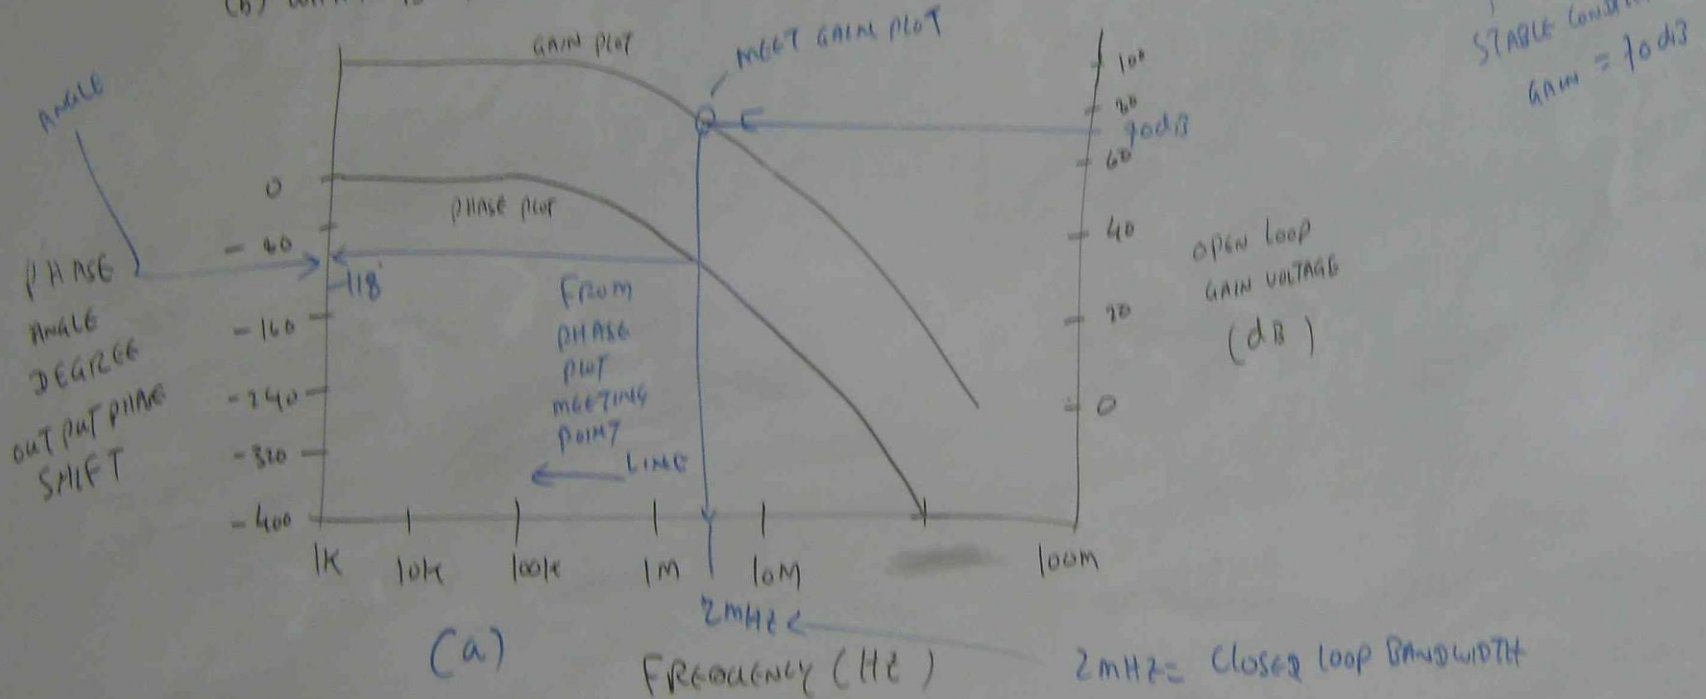 GAIN PLOT
MEET GAIN PLOT
STABLE
GAIN = 70 dB
ANGLE
100
70dB
60
0
PHASE PLOT
40
OPEN LOOP
GAIN VOLTAGE
(dB)
PHASE
ANGLE
DEGREE
OUTPUT PHASE
SHIFT
-118°
-160
-240
-320
-400
FROM
PHASE
PLOT
MEETING
POINT
LINE
20
0
1K
10K
100K
1M
10M
100M
2MHZ
(a)
FREQUENCY (HZ)
2MHZ = CLOSED LOOP BANDWIDTH